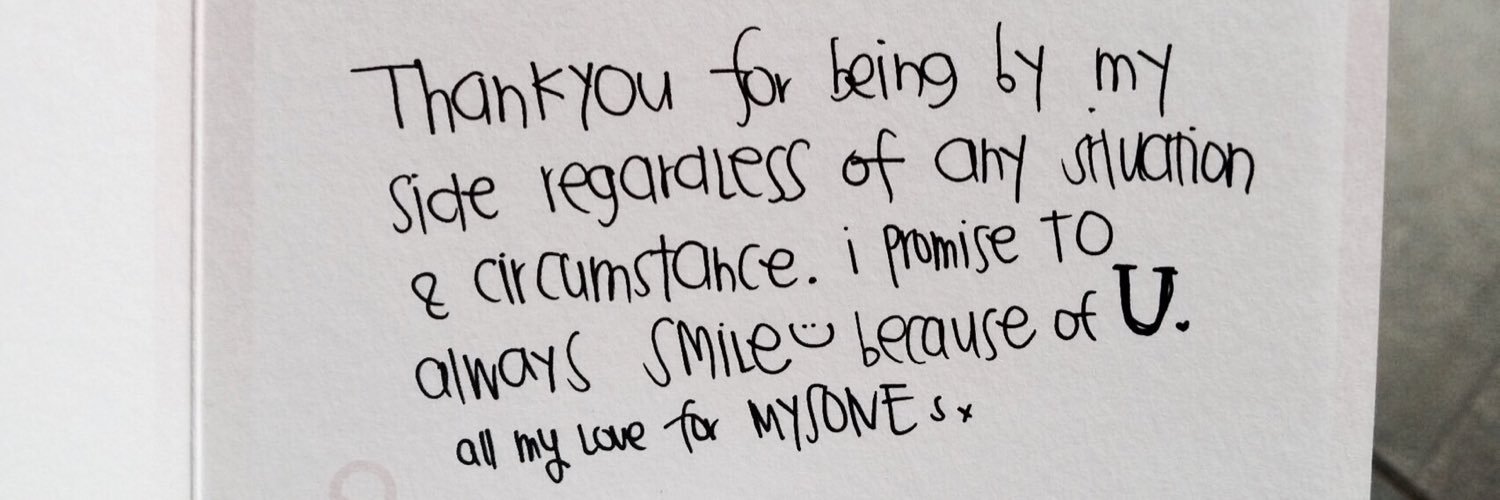 Thankyou for being by my
side regardless of any situation
& circumstance. i promise to
always smile :) because of U.
all my love for MYSONEs x